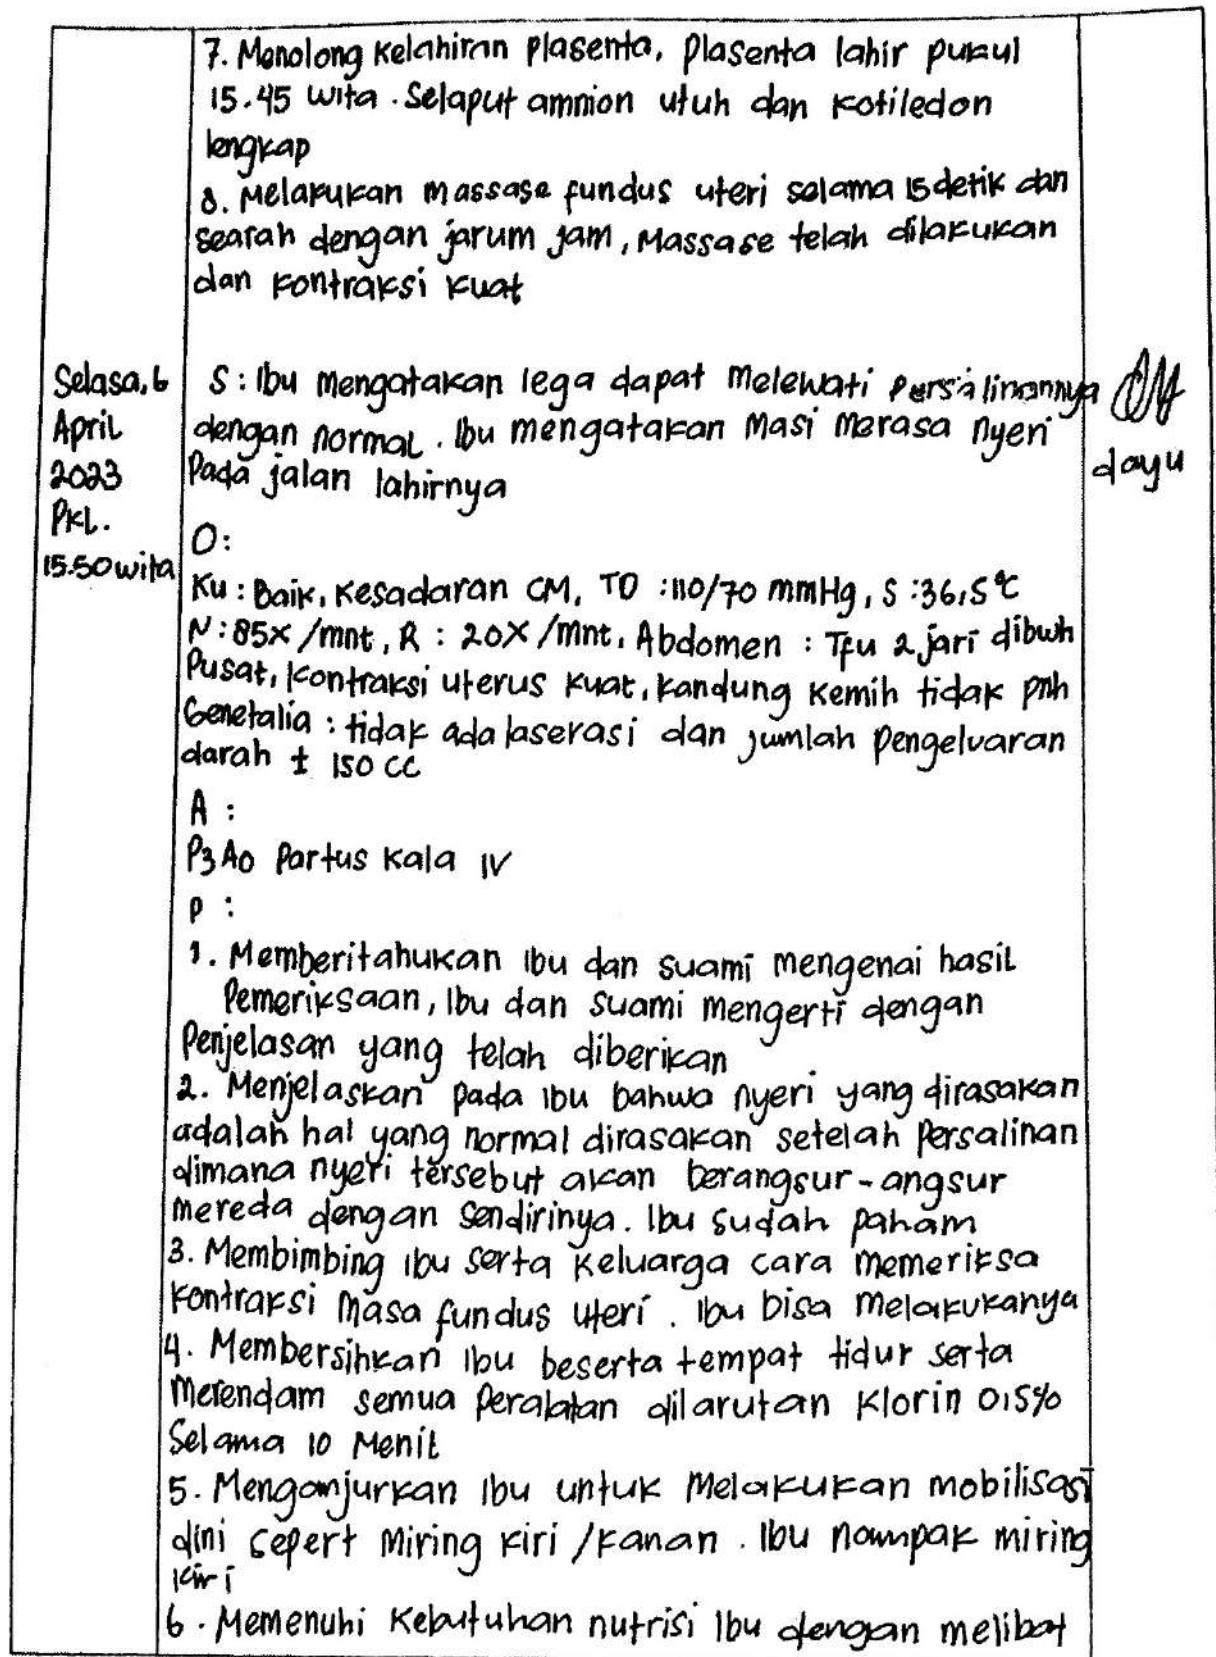 7. Menolong Kelahiran Plasenta, Plasenta lahir pukul
15.45 wita. Selaput amnion utuh dan kotiledon
lengkap
8. Melakukan massase fundus uteri selama 15 detik dan
searah dengan jarum jam, Massase telah dilakukan
dan kontraksi kuat
Selasa, 6
April
2023
Pkl.
15.50 wita
S: Ibu mengatakan lega dapat Melewati Persalinannya
dengan normal. Ibu mengatakan Masi Merasa nyeri
Pada jalan lahirnya
dayu
O:
Ku : Baik, Kesadaran CM, TD : 110/70 mmHg, S : 36,5 °C
N : 85x/mnt, R : 20x/mnt, Abdomen : Tfu 2 jari dibwh
Pusat, Kontraksi uterus kuat, kandung kemih tidak pnh
Genetalia : tidak ada laserasi dan jumlah Pengeluaran
darah ± 150 cc
A :
P3A0 Partus Kala IV
P :
1. Memberitahukan ibu dan suami mengenai hasil
Pemeriksaan, Ibu dan suami mengerti dengan
Penjelasan yang telah diberikan
2. Menjelaskan pada ibu bahwa nyeri yang dirasakan
adalah hal yang normal dirasakan setelah Persalinan
dimana nyeri tersebut akan berangsur-angsur
mereda dengan sendirinya. Ibu sudah paham
3. Membimbing ibu serta keluarga cara memeriksa
kontraksi masa fundus uteri. Ibu bisa Melakukanya
4. Membersihkan ibu beserta tempat tidur serta
Merendam semua Peralatan dilarutan Klorin 0,5%
Selama 10 Menit
5. Menganjurkan Ibu untuk Melakukan mobilisasi
dini sepert Miring kiri/kanan. Ibu nampak miring
kiri
6. Memenuhi Kebutuhan nutrisi Ibu dengan melibat